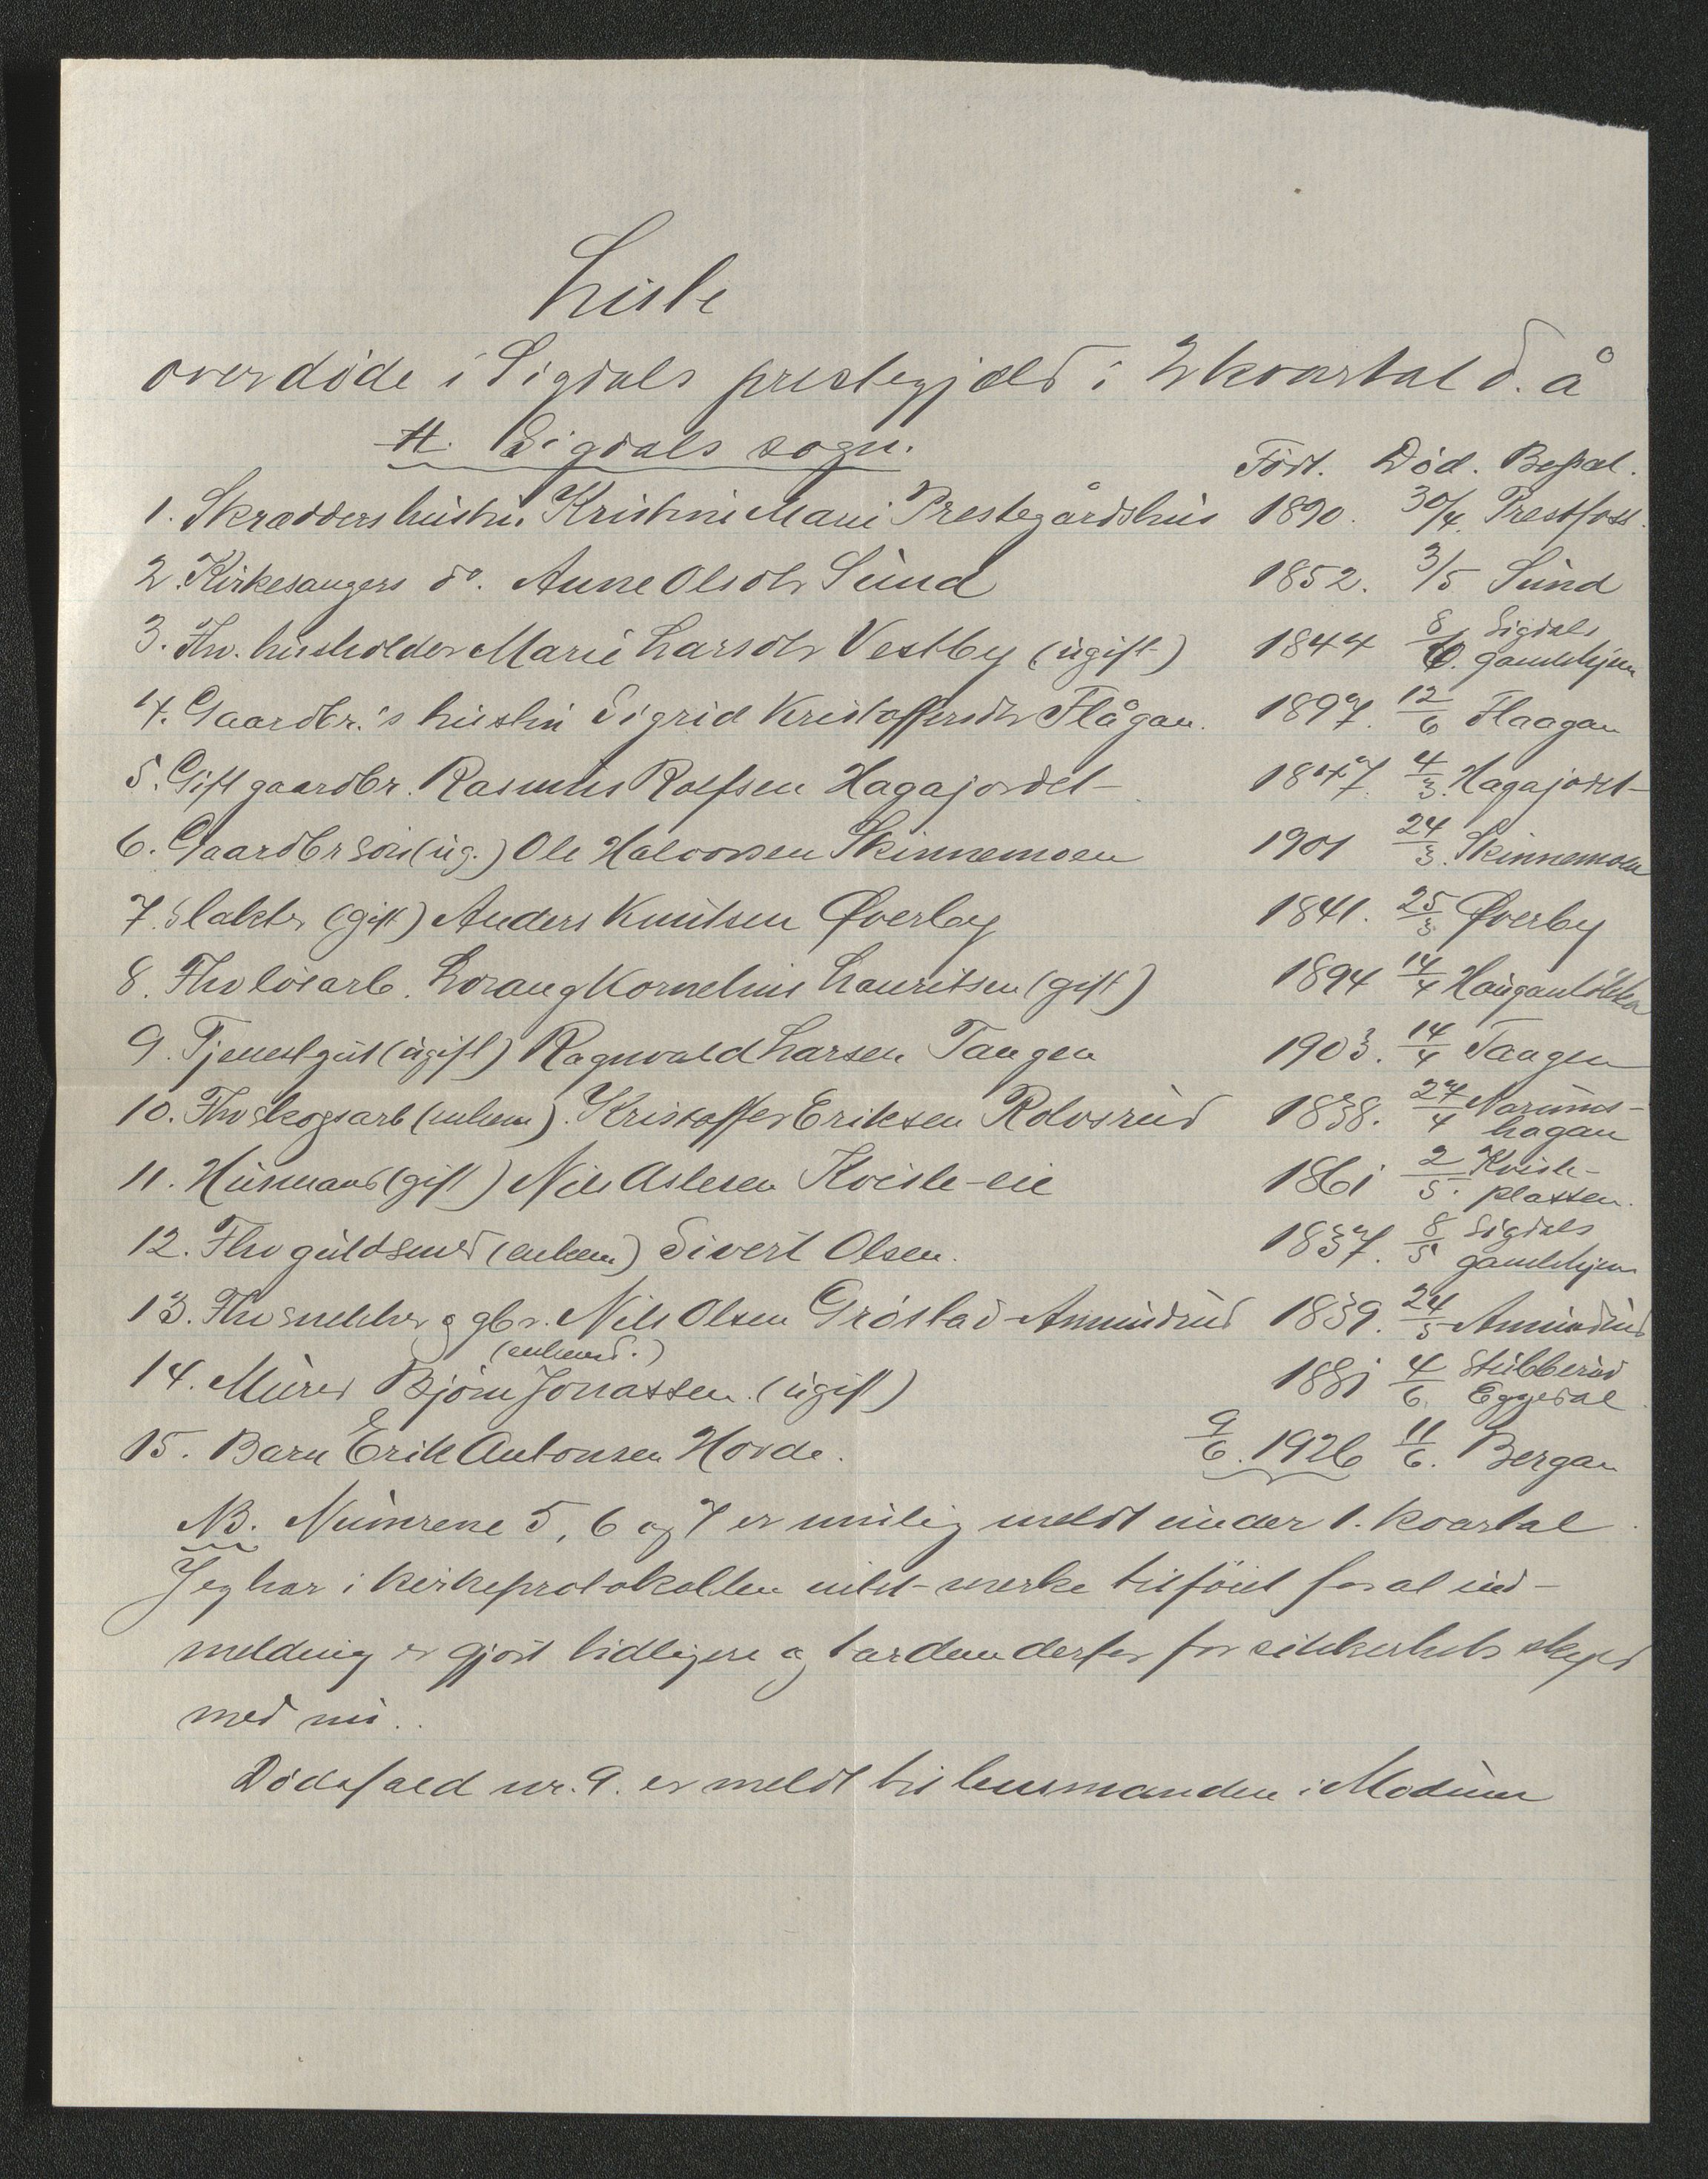 Liste
over døde i Sigdals prestegjeld i 2 kvartal d. å
A. Sigdals sogn.
Født. Død. Bopæl.
1. Skræddershustru Kristine Marie Prestegårdshus 1890. 30/4. Prestfoss.
2. Kirkesangers do. Anne Olsdtr Sund 1852. 3/5 Sund
3. Fhv. husholder Marie Larsdtr Vestby (ugift) 1844 8/6. Sigdals gamlehjem
4. Gaardbr.'s hustru Sigrid Kristoffersdtr Flågan. 1897. 12/6 Flaagan
5. Gift gaardbr. Rasmus Rolfsen Hagajordet 1847. 4/3. Hagajordet
6. Gaardbr søn (ug.) Ole Halvorsen Skinnemoen 1901 24/3. Skinnemoen
7. Slakter (gift) Anders Knutsen Øverby 1841. 25/3 Øverby
8. Fhv løsarb. Lorang Kornelius Lauritsen (gift) 1894 14/4 Haugan
9. Tjenestgut (ugift) Ragnvald Larsen Taugen 1903. 14/4 Taagen
10. Fhv skogsarb (enkem). Kristoffer Eriksen Rolvsrud 1838. 27/4 Narums-
hagan
11. Husmand (gift) Nils Aslesen Kvisle-eie 1861 2/5. Kvisle-
plassen.
12. Fhv guldsmed (enkem) Sivert Olsen. 1837. 8/5 Sigdals
gamlehjem
13. Fhv snekker og gbr. Nils Olsen Grøstad-Amundrud 1839. 24/5 Amundrud
(enkemd.)
14. Murer Bjørn Jonassen. (ugift) 1881 4/6. Stubberud
Eggedal
15. Barn Erik Antonsen Hovde. 9/6. 1926 11/6. Bergan
NB. Numrene 5, 6 og 7 er mulig meldt under 1. kvartal.
Jeg har i kirkeprotokollen intet merke tilføiet for at ind-
melding er gjort tidligere og tar dem derfor for sikkerhets skyld
med nu..
Dødsfald nr. 9. er meldt til lensmanden i Modum